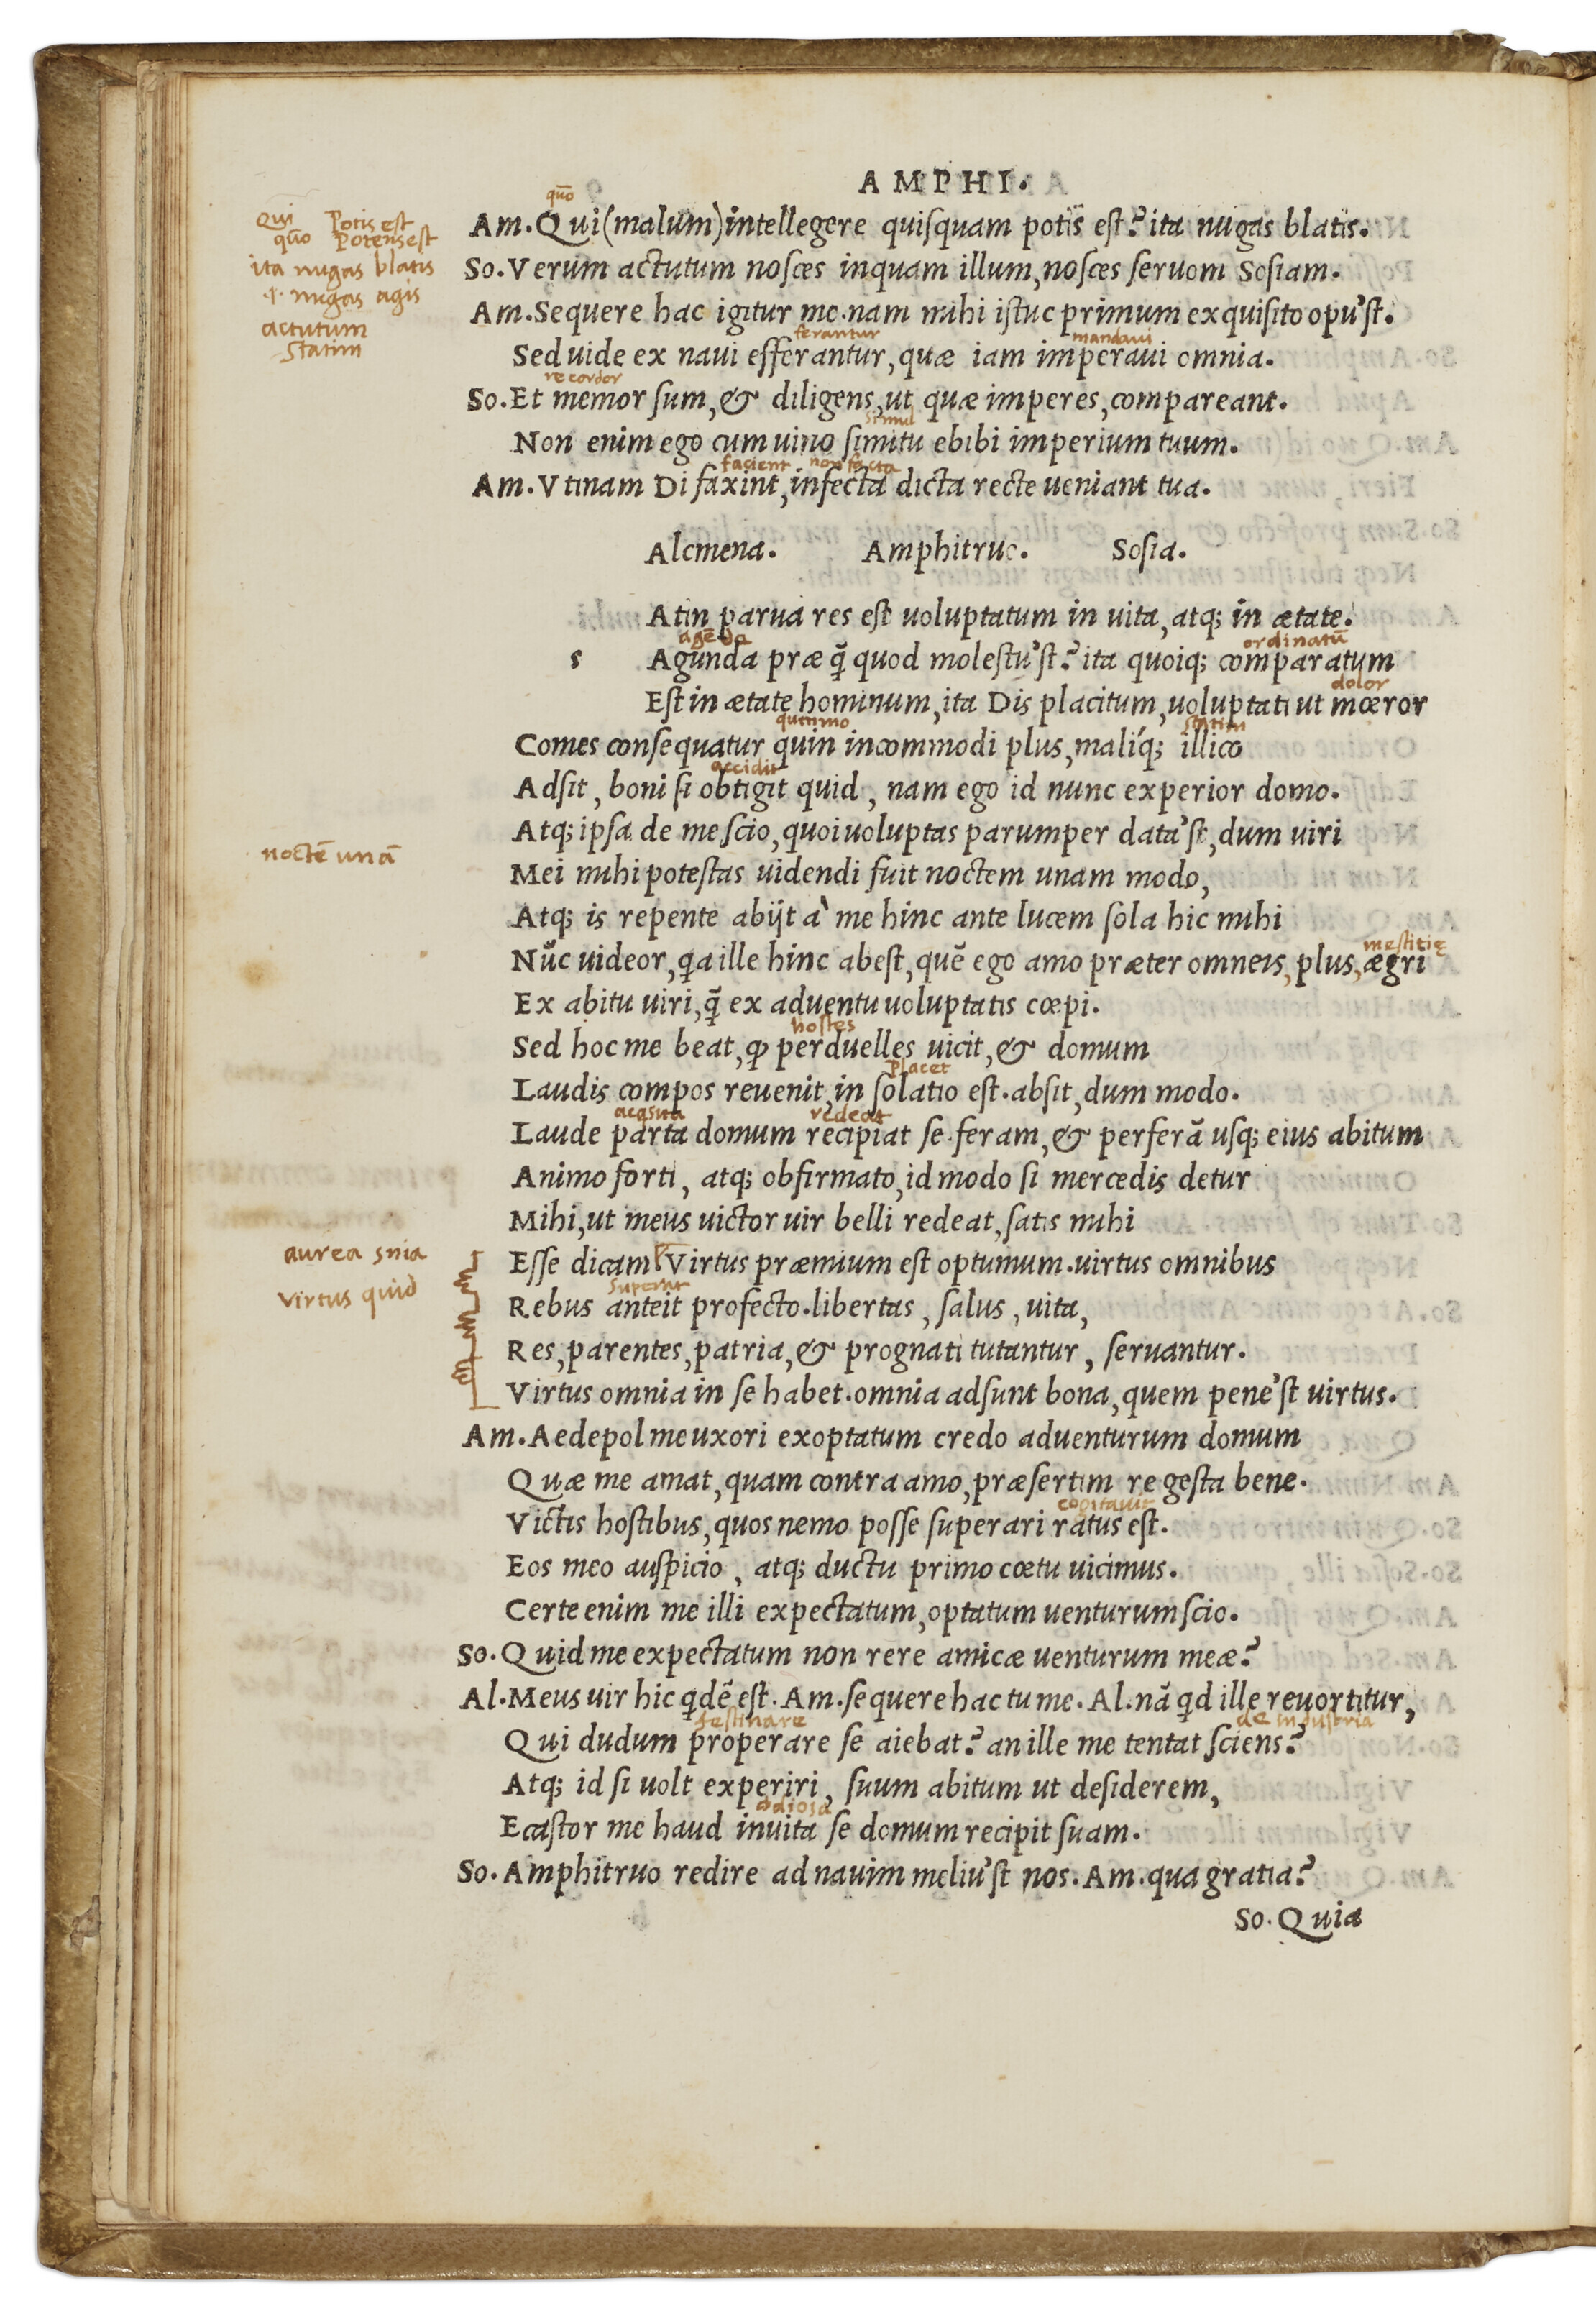 AMPHI.
quo̅
Am. Qui (malum) intellegere quiſquam potis eſt? ita nugas blatis.
Qui Potis est
quo̅ Potens est
ita nugas blatis
.i. nugas agis
actutum
Statim
So. Verum actutum noſces inquam illum, noſces ſeruom Soſiam.
Am. Sequere hac igitur me. nam mihi iſtuc primum exquiſito opu'ſt.
ferantur mandavi
Sed uide ex naui efferantur, quæ iam imperaui omnia.
recordor
So. Et memor ſum, & diligens, ut quæ imperes, compareant.
simul
Non enim ego cum uino ſimitu ebibi imperium tuum.
facient non facta
Am. Vtinam Di faxint, infecta dicta recte ueniant tua.
Alcmena. Amphitruo. Soſia.
Atin parua res eſt uoluptatum in uita, atq; in ætate.
agēda ordinatū
s Agunda præ q̃ quod moleſtu'ſt? ita quoiq; comparatum
dolor
Eſt in ætate hominum, ita Dis placitum, uoluptati ut mœror
quinimo statim
Comes conſequatur quin incommodi plus, maliq́; illico
accidit
Adſit, boni ſi obtigit quid, nam ego id nunc experior domo.
Atq; ipſa de me ſcio, quoi uoluptas parumper data'ſt, dum uiri
noctē unā
Mei mihi poteſtas uidendi fuit noctem unam modo,
Atq; is repente abijt à me hinc ante lucem ſola hic mihi
mestitię
Nūc uideor, q̃a ille hinc abeſt, quē ego amo præter omneis, plus, ægri
Ex abitu uiri, q̃ ex aduentu uoluptatis cœpi.
hostes
Sed hoc me beat, ꝙ perduelles uicit, & domum
placet
Laudis compos reuenit, in ſolatio eſt. abſit, dum modo.
acqsita redeat
Laude parta domum recipiat ſe. feram, & perferā uſq; eius abitum
Animo forti, atq; obfirmato, id modo ſi mercedis detur
Mihi, ut meus uictor uir belli redeat, ſatis mihi
aurea snia
Eſſe dicam. Virtus præmium eſt optumum. uirtus omnibus
virtus quid
superat
Rebus anteit profecto. libertas, ſalus, uita,
Res, parentes, patria, & prognati tutantur, ſeruantur.
Virtus omnia in ſe habet. omnia adſunt bona, quem pene'ſt uirtus.
Am. Aedepol me uxori exoptatum credo aduenturum domum
Quæ me amat, quam contra amo, præſertim re geſta bene.
cogitauit
Victis hoſtibus, quos nemo poſſe ſuperari ratus eſt.
Eos meo auſpicio, atq; ductu primo cœtu uicimus.
Certe enim me illi expectatum, optatum uenturum ſcio.
So. Quid me expectatum non rere amicæ uenturum meæ?
Al. Meus uir hic q̃dē eſt. Am. ſequere hac tu me. Al. nā q̃d ille reuortitur,
festinare de industria
Qui dudum properare ſe aiebat? an ille me tentat ſciens?
Atq; id ſi uolt experiri, ſuum abitum ut deſiderem,
odiosa
Ecaſtor me haud inuita ſe domum recipit ſuam.
So. Amphitruo redire ad nauim meliu'ſt nos. Am. qua gratia?
So. Quia